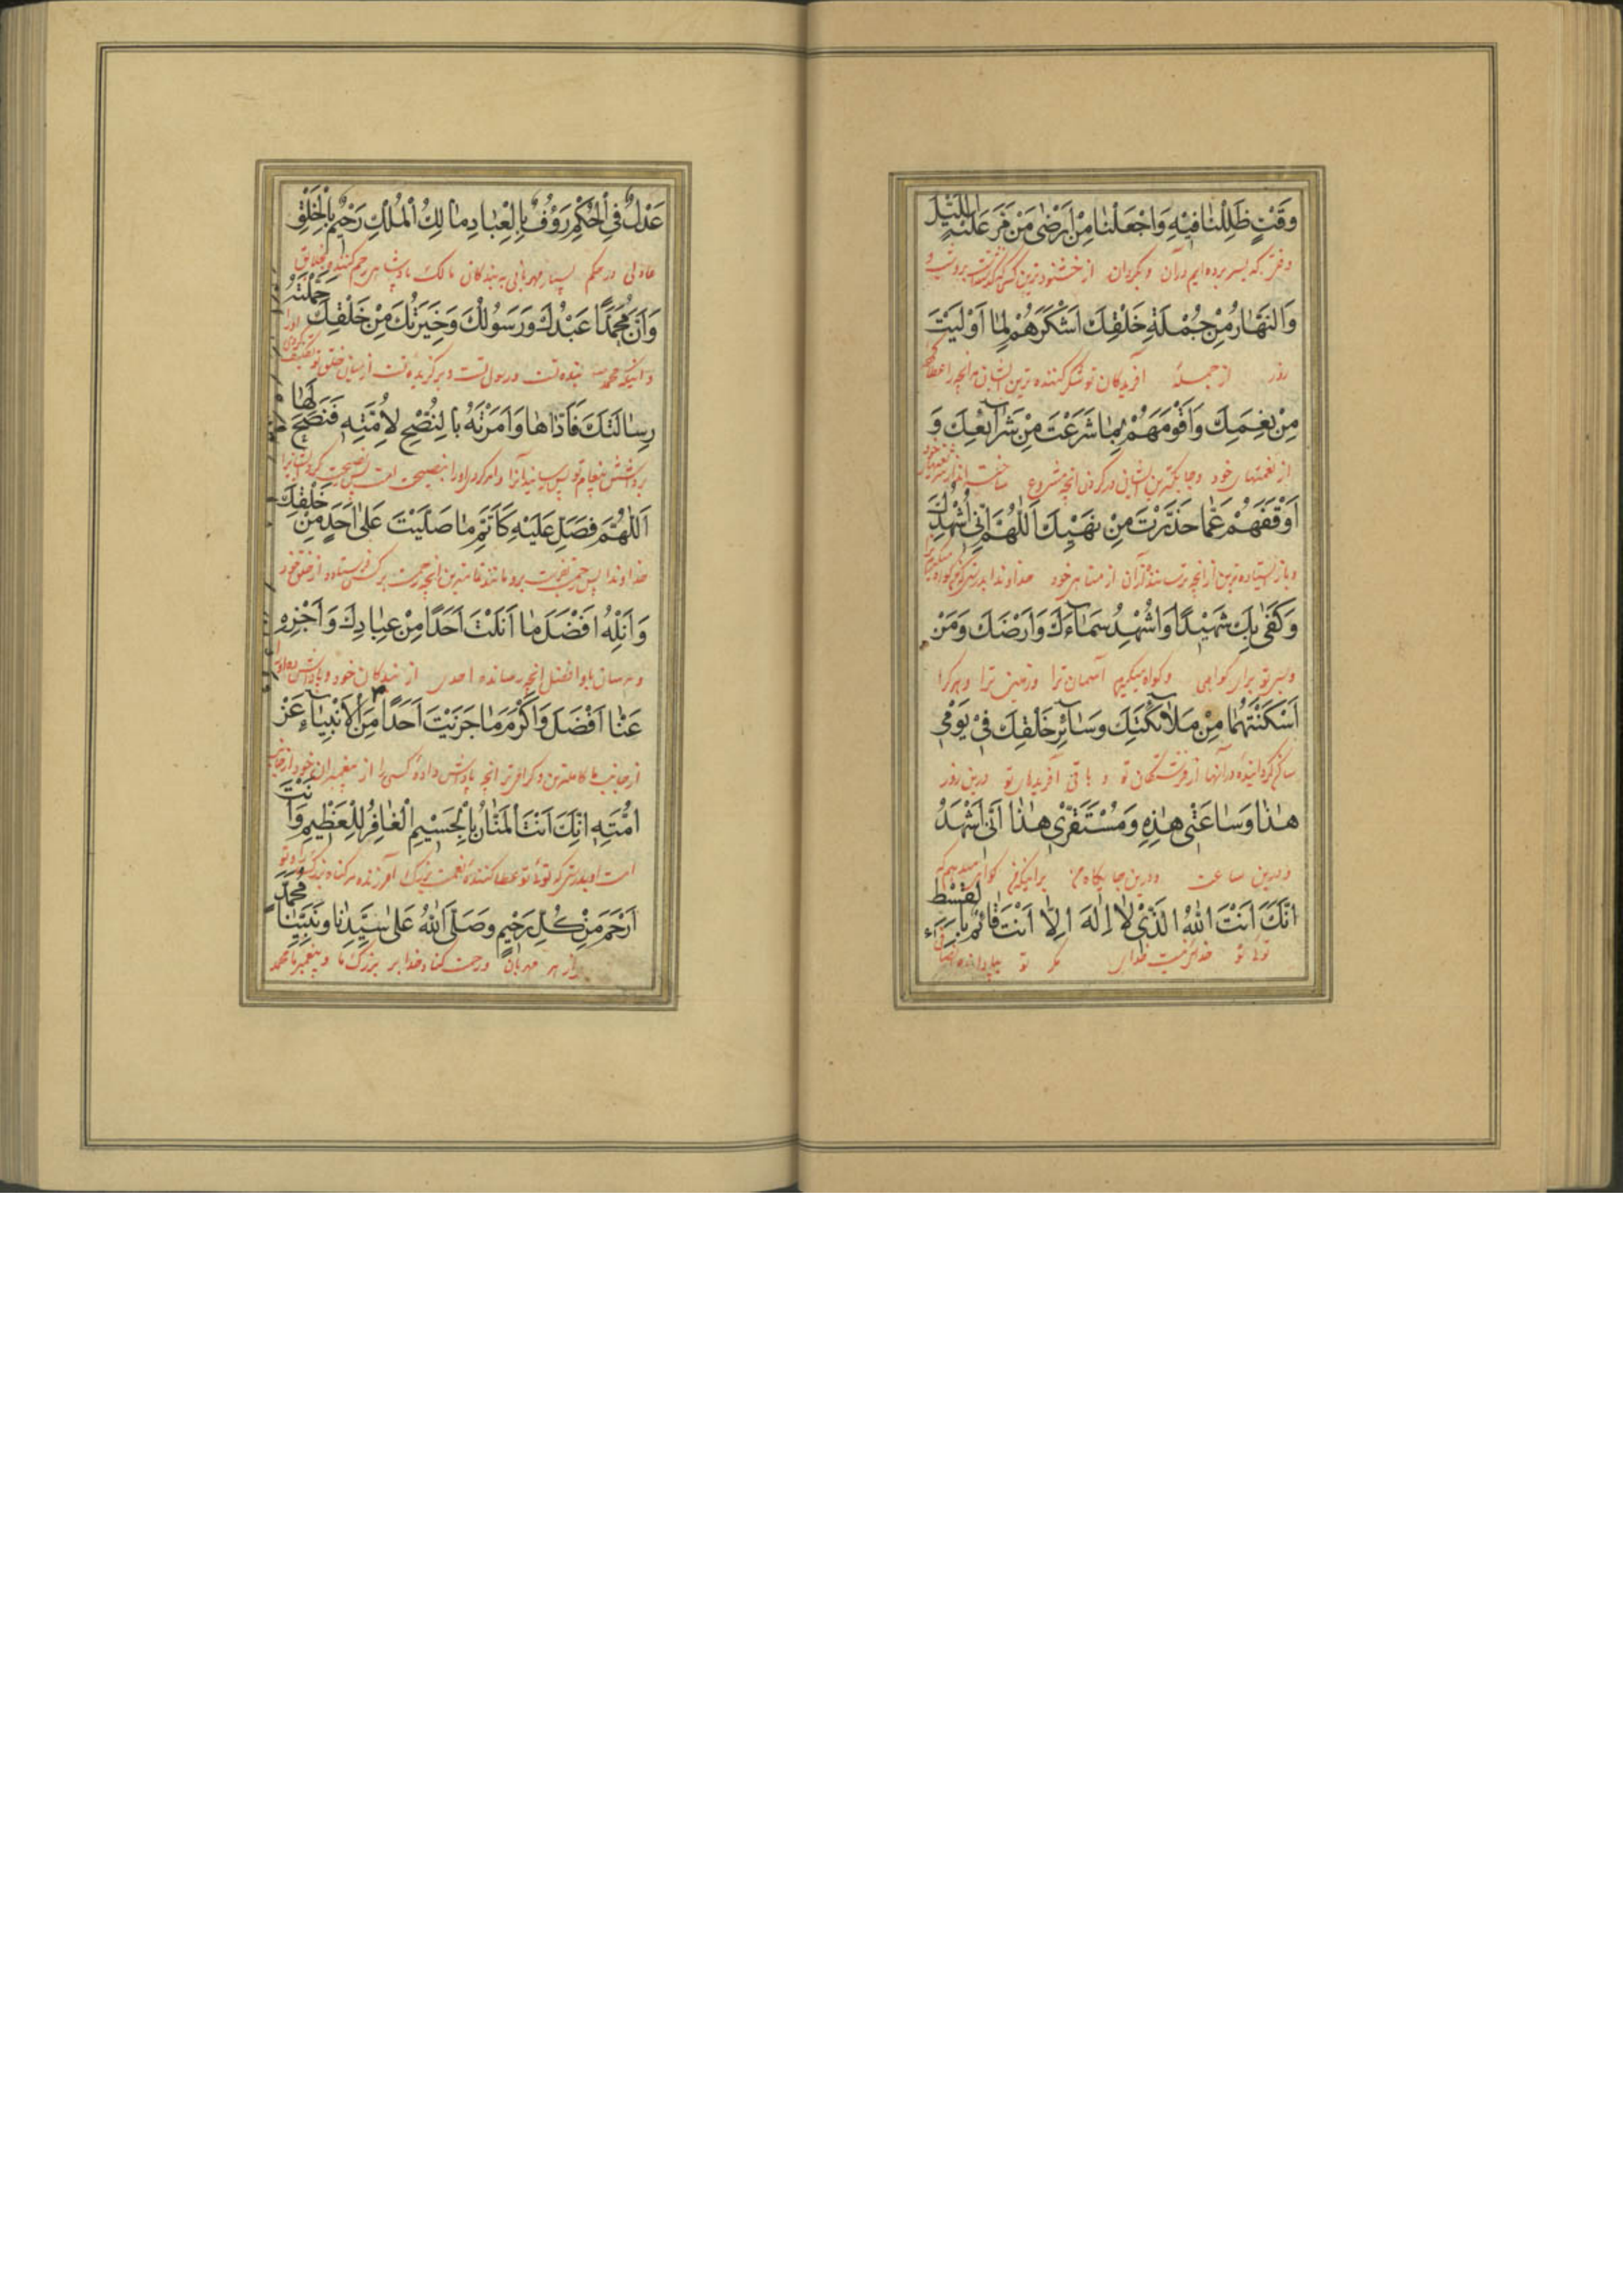 وَقْتٍ ظَلِلْنَا فِيْهِ وَاجْعَلْنَا مِنْ اَرْضٰى مَنْ مَرَّ عَلَيْهِ اللَّيْلُ
وقتی که بسر برده‌ایم در آن و بگردان از خشنودترین کسی که گذشت بر او شب و
وَالنَّهَارُ مِنْ جُمْلَةِ خَلْقِكَ اَشْكَرَهُمْ لِمَا اَوْلَيْتَ
روز از جملهٔ آفریدگان تو شکر کننده‌ترین ایشان مر آنچه را
مِنْ نِعَمِكَ وَاَقْوَمَهُمْ بِمَا شَرَعْتَ مِنْ شَرَآئِعِكَ وَ
از نعمتهای خود و آنچه مشروع ساخته
اَوْقَفَهُمْ عَمَّا حَذَّرْتَ مِنْ نَهْيِكَ اَللّٰهُمَّ اِنِّىْ اُشْهِدُكَ
و باز ایستاده‌ترین از آنچه از مناهی خود خداوندا بدرستی که
وَكَفٰى بِكَ شَهِيْدًا وَاُشْهِدُ سَمَآءَكَ وَاَرْضَكَ وَمَنْ
و بسی تو برای گواهی و گواه میگیرم آسمان ترا و زمین ترا و هر که را
اَسْكَنْتَهُمَا مِنْ مَلٰٓائِكَتِكَ وَسَآئِرِ خَلْقِكَ فِىْ يَوْمِىْ
ساکن گردانیدهٔ در آنها از فرشتگان تو و باقی آفریدگان تو درین روز
هٰذَا وَسَاعَتِىْ هٰذِهِ وَمُسْتَقَرِّىْ هٰذَا اَنِّىْ اَشْهَدُ
و درین ساعت و درین جایگاه من گواهی میدهم که
اَنَّكَ اَنْتَ اللّٰهُ الَّذِىْ لَا اِلٰهَ اِلَّا اَنْتَ قَائِمٌ بِالْقِسْطِ
توئی تو خدائی نیست خدای مگر تو
عَدْلٌ فِى الْحُكْمِ رَؤُفٌ بِالْعِبَادِ مَالِكُ الْمُلْكِ رَحِيْمٌ بِالْخَلْقِ
عادلی در حکم بسیار مهربانی به بندگان مالک پادشاهی رحم کننده بخلایق
وَاَنَّ مُحَمَّدًا عَبْدُكَ وَرَسُوْلُكَ وَخِيَرَتُكَ مِنْ خَلْقِكَ حَمَّلْتَهُ
و اینکه محمد بنده تست و رسول تست و برگزیده تست از میان خلق تو
رِسَالَتَكَ فَاَدَّاهَا وَاَمَرْتَهُ بِالنُّصْحِ لِاُمَّتِهِ فَنَصَحَ لَهَا
پیغام تو پس رسانید آنرا و امر کردی او را بنصیحت امت پس نصیحت کرد
اَللّٰهُمَّ فَصَلِّ عَلَيْهِ كَاَتَمِّ مَا صَلَّيْتَ عَلٰى اَحَدٍ مِنْ خَلْقِكَ
خداوندا پس رحمت بفرست برو مانند تمامترین آنچه رحمت بر کسی فرستاده از خلق خود
وَاَنِلْهُ اَفْضَلَ مَا اَنَلْتَ اَحَدًا مِنْ عِبَادِكَ وَاَجْزِهِ
و برسان باو افضل آنچه رسانده احدی از بندگان خود و پاداش ده او را
عَنَّا اَفْضَلَ وَاَكْرَمَ مَا جَزَيْتَ اَحَدًا مِنَ الْاَنْبِيَآءِ عَنْ
از جانب ما کاملترین و گرامی‌تر آنچه پاداش دادهٔ کسی را از پیغمبران خود از جانب
اُمَّتِهِ اِنَّكَ اَنْتَ الْمَنَّانُ بِالْجَسِيْمِ الْغَافِرُ لِلْعَظِيْمِ وَاَنْتَ
امت او بدرستی که توئی تو عطا کنندهٔ نعمت بزرگ آمرزنده مر گناه بزرگ و تو
اَرْحَمُ مِنْ كُلِّ رَحِيْمٍ وَصَلَّى اللّٰهُ عَلٰى سَيِّدِنَا وَنَبِيِّنَا مُحَمَّدٍ
از هر مهربان و رحمت کناد خدا بر بزرگ ما و پیغمبر ما محمد